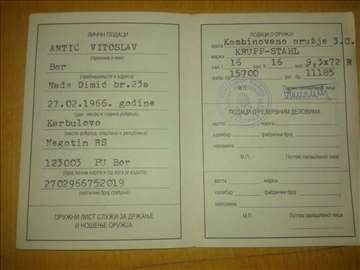 ЛИЧНИ ПОДАЦИ
ANTIĆ VITOSLAV
(презиме и име)
Bor
(пребивалиште и адреса)
Nade Dimić br.23a
27.02.1966. godine
(дан, месец и година рођења)
Karbulovo
(место рођења, општина и република)
Negotin RS
123003 PU Bor
2702966752019
(матични број грађана)
ОРУЖНИ ЛИСТ СЛУЖИ ЗА ДРЖАЊЕ
И НОШЕЊЕ ОРУЖЈА
ПОДАЦИ О ОРУЖЈУ
врста Kombinovano oružje 3.C.
KRUPP-STAHL
кал. 16 16 9,3x72 R
15700 бр. 11185
М.П.
ПОДАЦИ О РЕЗЕРВНИМ ДЕЛОВИМА
врста марка
калибар фабрички број
напомена
М.П. Потпис овлашћеног лица
врста марка
калибар фабрички број
напомена
М.П. Потпис овлашћеног лица